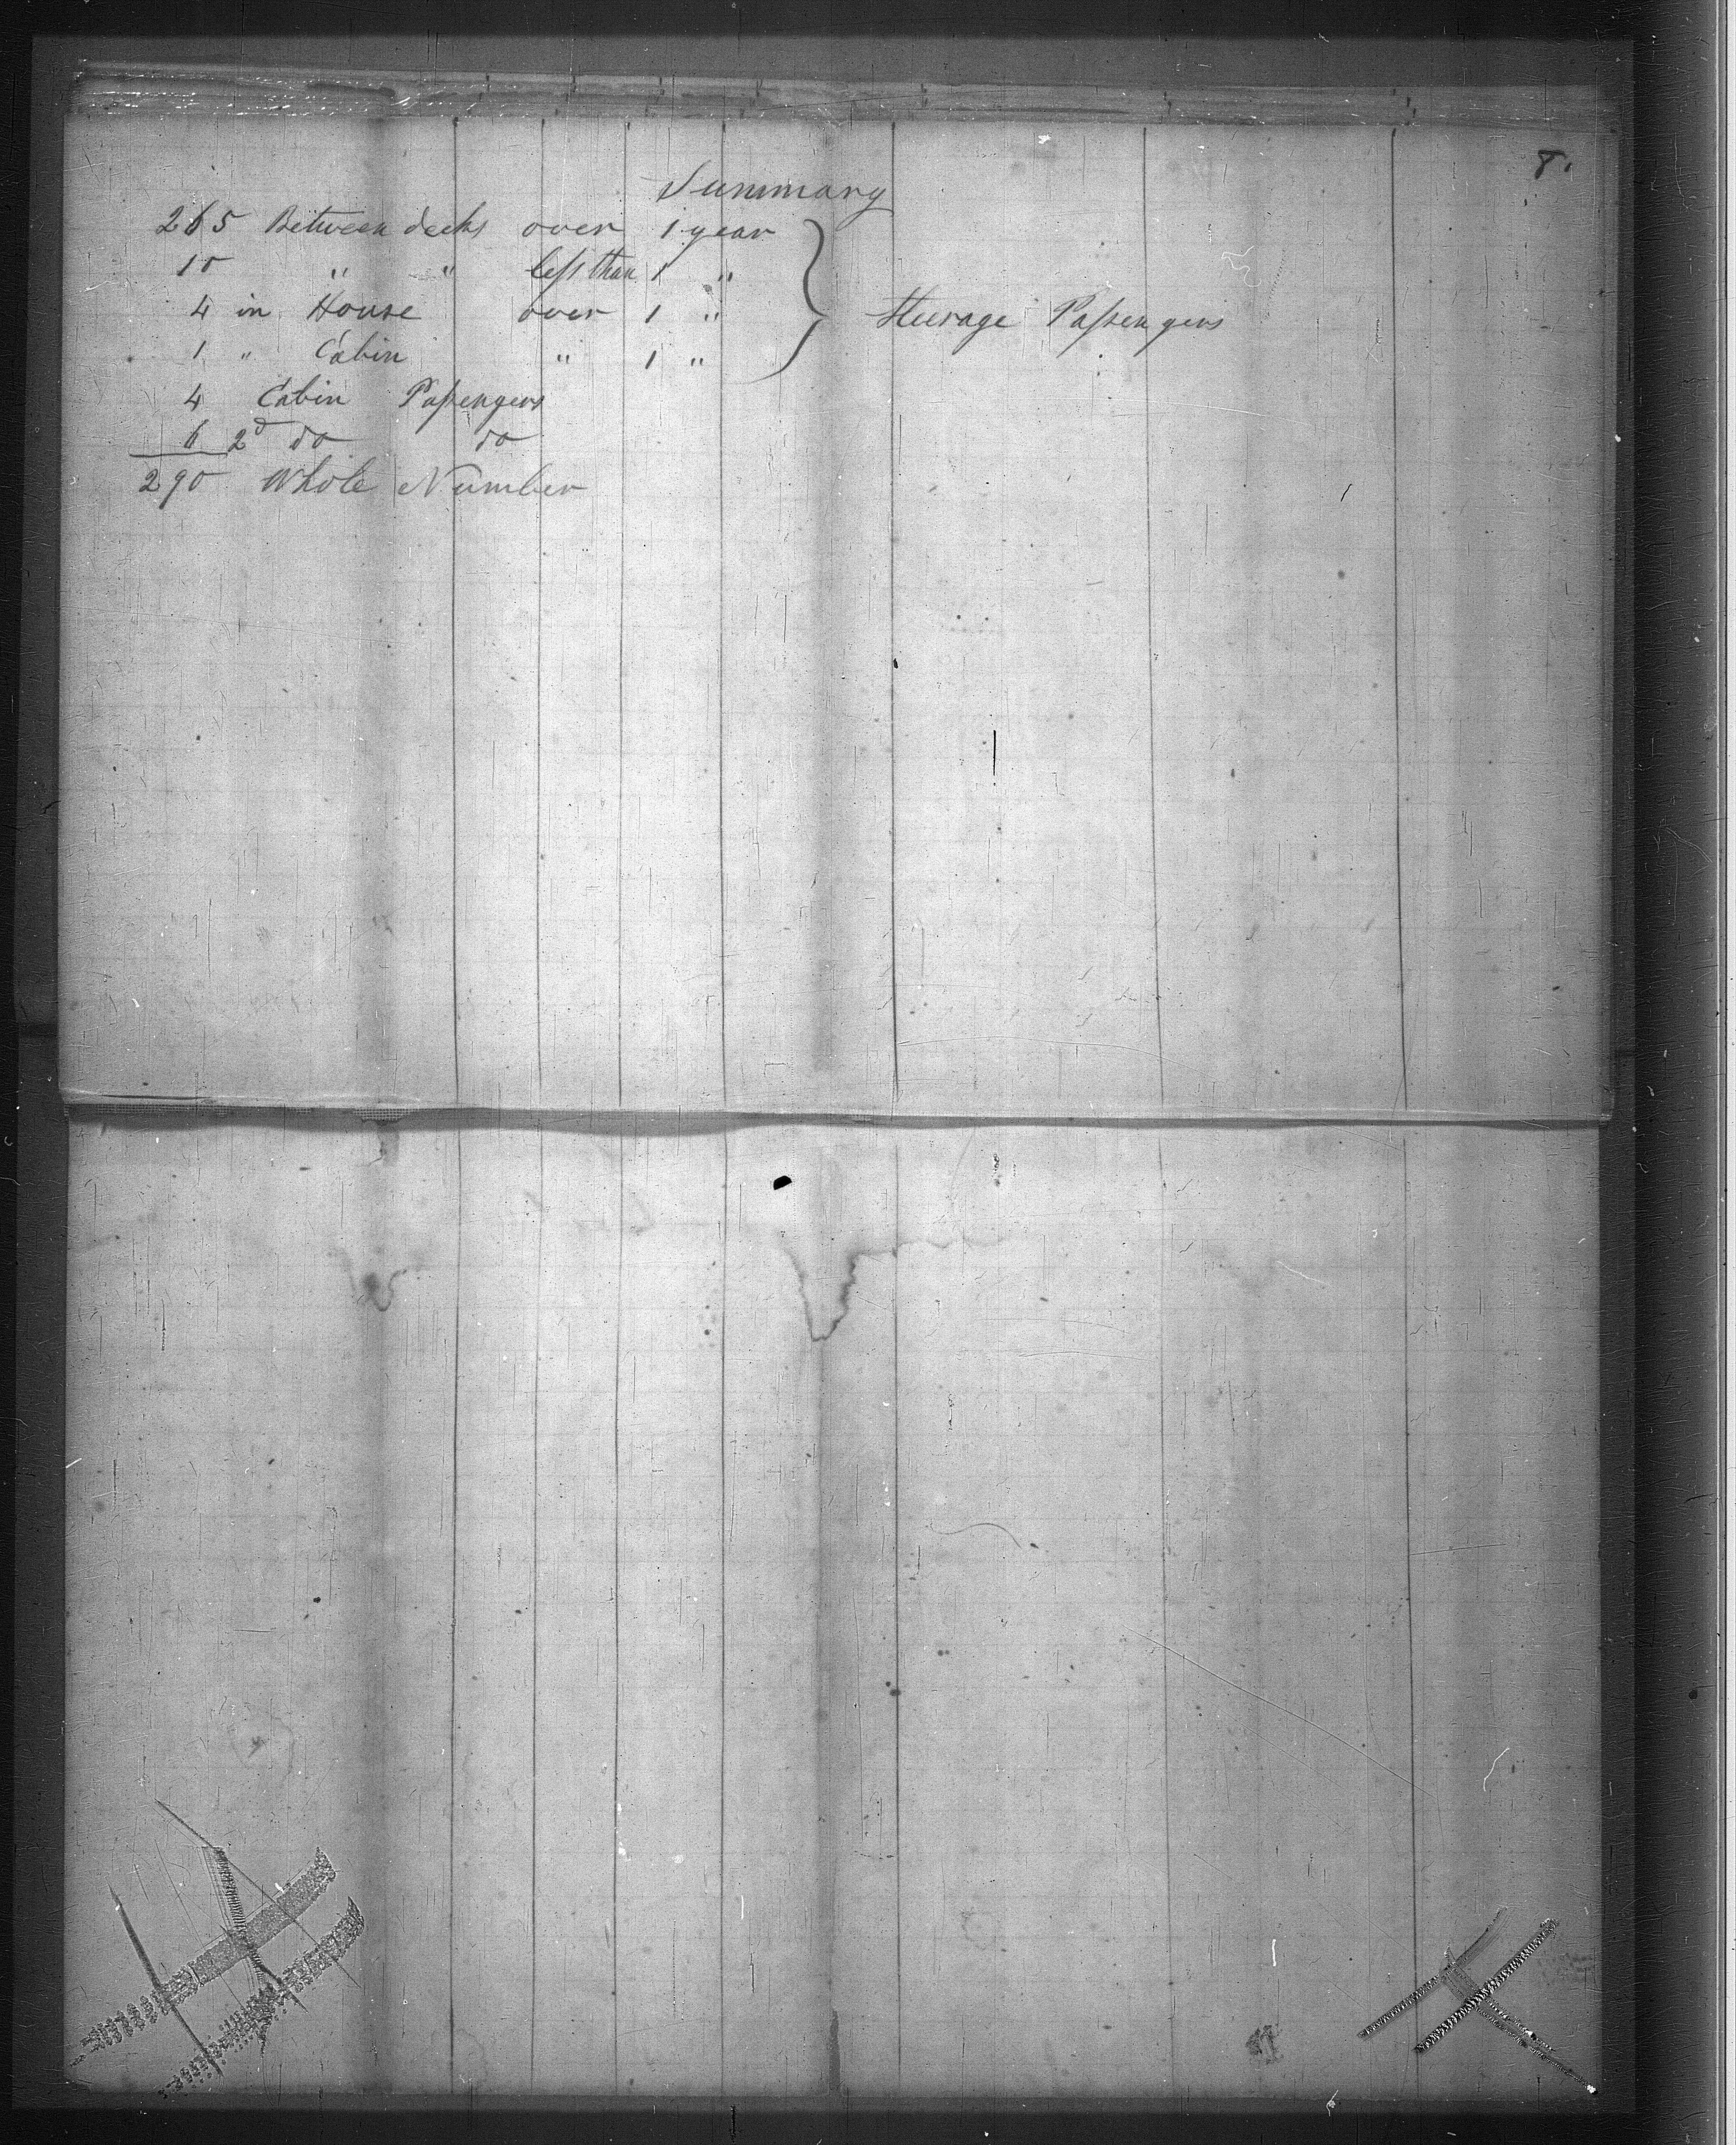 8.
Summary
265 Between decks over 1 year
10 " " less than 1 "
4 in House over 1 "
1 " Cabin " 1 "
Steerage Passengers
4 Cabin Passengers
6 2d do do
290 Whole Number